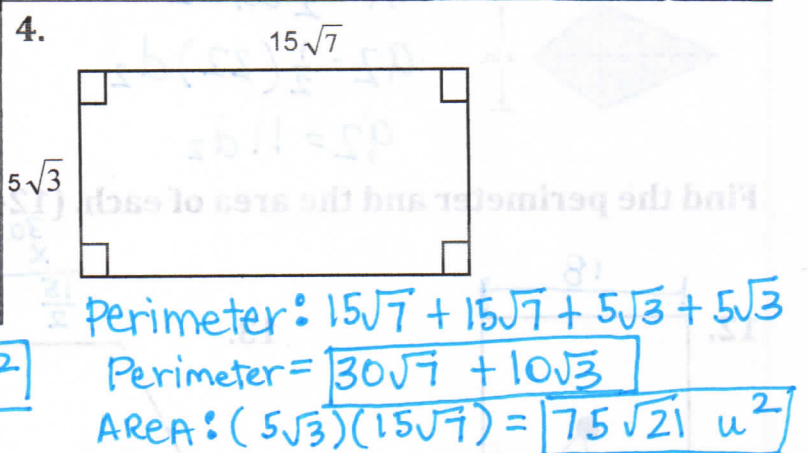 4.
15√7
5√3
Perimeter: 15√7 + 15√7 + 5√3 + 5√3
Perimeter = 30√7 + 10√3
AREA: (5√3)(15√7) = 75√21 u²
2